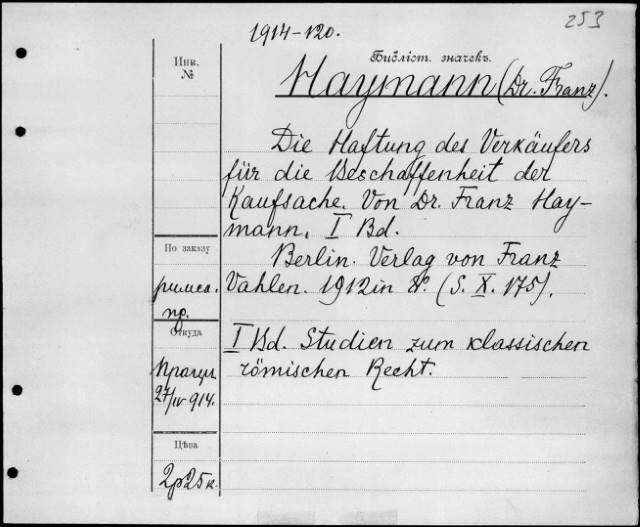 253
1914-120.
Инв.
№
Библіот. значекъ.
Haymann (Dr. Franz).
Die Haftung des Verkäufers
für die Beschaffenheit der
Kaufsache. Von Dr. Franz Hay-
mann. I Bd.
По заказу
римск.
пр.
Berlin. Verlag von Franz
Vahlen. 1912 in 8º. (S. X. 175).
Откуда
27/IV 914.
I Bd. Studien zum klassischen
römischen Recht.
Цѣна
2р25к.